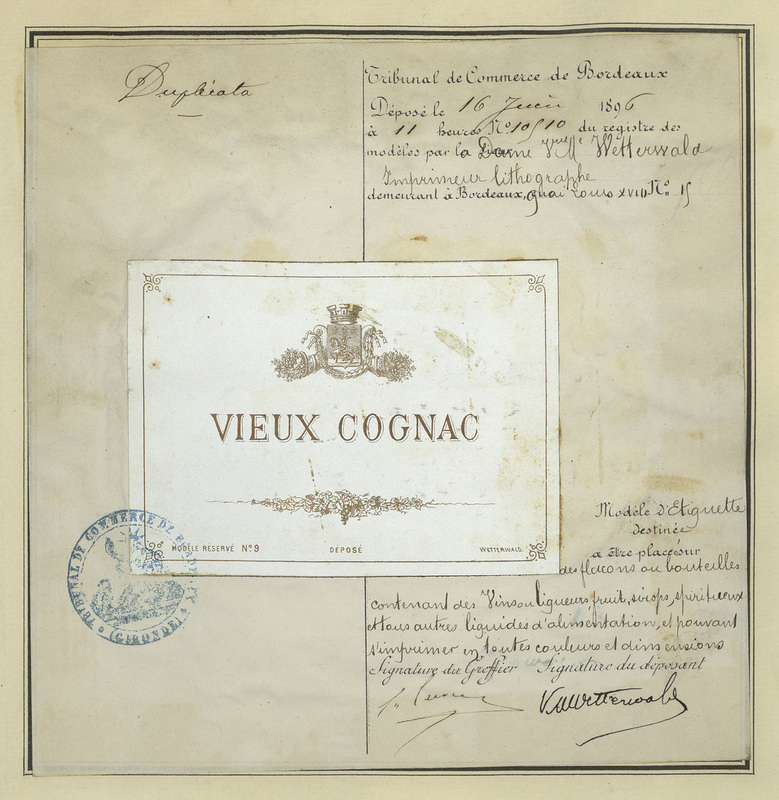 Duplicata
Tribunal de Commerce de Bordeaux
Déposé le 16 Juin 1896
à 11 heures No 10510 du registre des
modèles par la Dame Vve Wetterwald
Imprimeur lithographe
demeurant à Bordeaux, quai Louis XVIII No 15
VIEUX COGNAC
MODÈLE RÉSERVÉ No 9 DÉPOSÉ WETTERWALD.
TRIBUNAL DE COMMERCE DE BORDEAUX
(GIRONDE)
Modèle d'Etiquette
destinée
a être placé sur
des flacons ou bouteilles
contenant des Vins ou liqueurs, fruit, sirops, spiritueux
et tous autres liquides d'alimentation, et pouvant
s'imprimer en toutes couleurs et dimensions
Signature du Greffier Signature du déposant
Vve Wetterwald